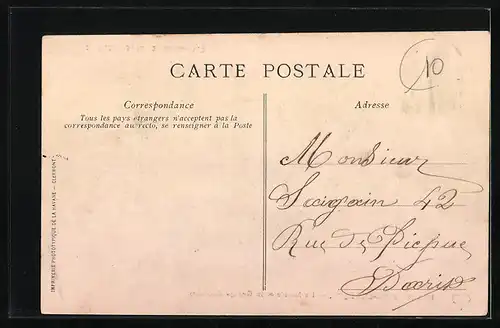 10
CARTE POSTALE
Correspondance
Tous les pays étrangers n'acceptent pas la
correspondance au recto, se renseigner à la Poste
Adresse
Monsieur
42
Rue de Picpus
Paris
IMPRIMERIE PHOTOTYPIQUE DE LA HAYANE — CLERMONT